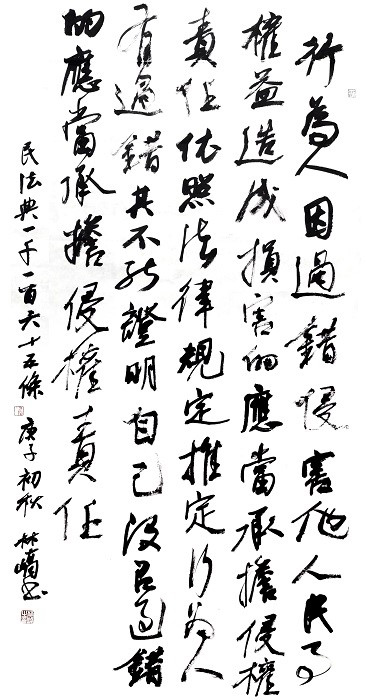 行為人因過錯侵害他人民事
權益造成損害的應當承擔侵權
責任依照法律規定推定行為人
有過錯其不能證明自己沒有過錯
的應當承擔侵權責任
民法典一千一百六十五條 庚子初秋 林书